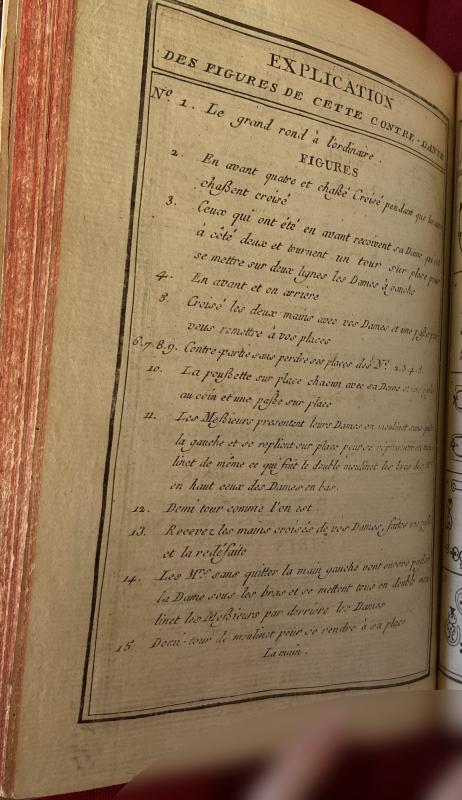 EXPLICATION
DES FIGURES DE CETTE CONTRE-DANSE
No 1. Le grand rond à l'ordinaire.
FIGURES
2. En avant quatre et chaßé Croisé pendant que les
chaßent croisé
3. Ceux qui ont été en avant recoivent sa Dame qui est
à côté deux et tournent un tour sur place pour
se mettre sur deux lignes les Dames à gauche
4. En avant et en arriére
5. Croisé les deux mains avec vos Dames et une paße pour
vous remettre à vos places
6.7.8.9. Contre-partie sans perdre ses places des No. 2.3.4.5.
10. La poußette sur place chacun avec sa Dame et
au coin et une paße sur place
11. Les Meßieurs presentent leurs Dames en moulinet sans
la gauche et se replient sur place pour se
linet de même ce qui fait le double moulinet les bras des Mrs
en haut ceux des Dames en bas.
12. Demi tour comme l'on est.
13. Recevez les mains croisés de vos Dames, faites
et la redéfaite
14. Les Mrs sans quitter la main gauche vont encore paßer
la Dame sous les bras et se mettent tous en double mou
linet les Meßieurs par derriére les Dames
15. Demi-tour de moulinet pour se rendre à sa place
La main.